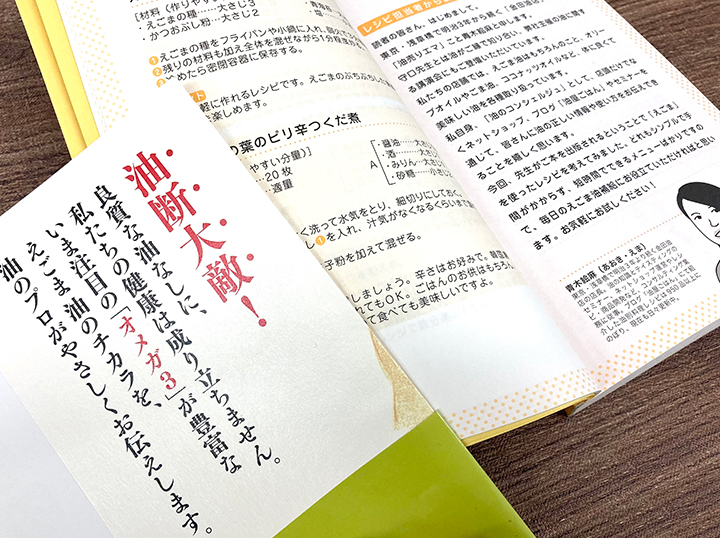 油断大敵!
良質な油なしに、
私たちの健康は成り立ちません。
いま注目の「オメガ3」が豊富な
えごま油のチカラを、
油のプロがやさしくお伝えします。
[材料(作りやす
・えごまの種……大さじ3
・かつおぶし粉…大さじ2
・青海苔
・塩
1えごまの種をフライパンや小鍋に入れ、弱火で
2残りの材料も加え全体を混ぜながら1分程度
めたら密閉容器に保存する。
軽に作れるレシピです。えごまのぷちぷち
楽しめます。
の葉のピリ辛つくだ煮
やすい分量)]
20枚
適量
A
・醤油……大さ
・酒………大さ
・みりん…大さ
・砂糖……小さ
く洗って水気をとり、細切りにしておく。
し1を入れ、汁気がなくなるくらいまで
子粉を加えて混ぜる。
しましょう。辛さはお好みで。韓国
れてもOK。ごはんのお供はもちろん、
て食べても美味しいですよ。
レシピ担当者から
読者の皆さん、はじめまして。
東京、浅草橋で明治3年から続く「金田油店」
「油売りエマ」こと青木絵麻と申します。
守口先生とは油がご縁で知り合い、男社主催の油に関す
る講演会にもご登壇いただいています。
私たちの店舗では、えごま油はもちろんのこと、オリー
ブオイルやごま油、ココナッツオイルなど、体に良くて
美味しい油を各種取り扱っています。
私自身、「油のコンシェルジュ」として、店頭だけでな
くネットショップ・ブログ「油屋ごはん」やセミナーを
通して、皆さんに油の正しい情報や使い方をお伝えでき
ることを嬉しく思います。
今回、先生がご本を出版されるということで「えごま」
を使ったレシピを考えてみました。どれもシンプルで手
間がかからず、短時間でできるメニューばかりですの
で、毎日のえごま油補給にお役立ていただければと思い
ます。お気軽にお試しください!
青木絵麻(あおき・えま)